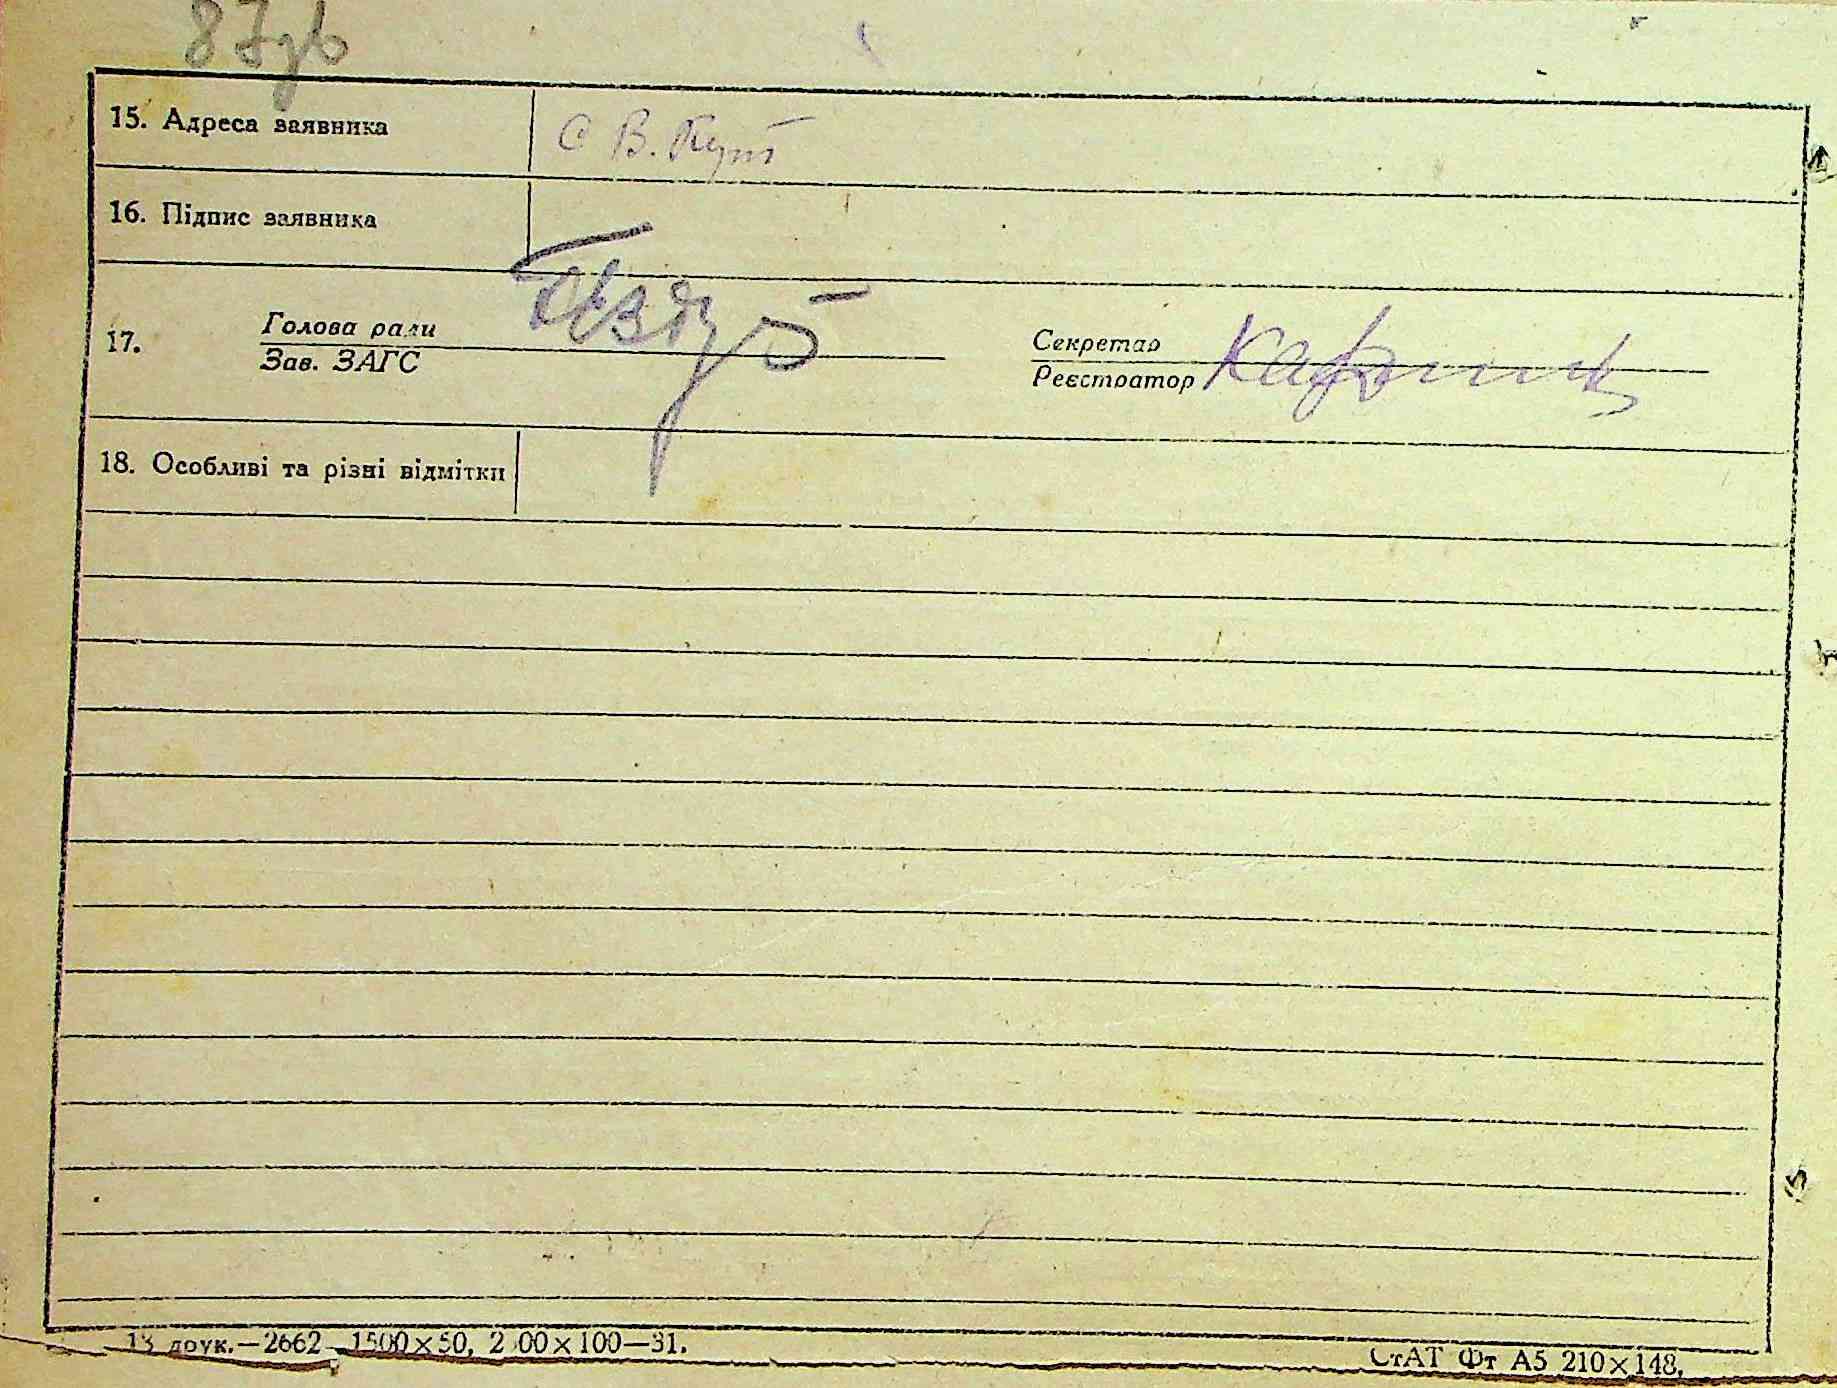 87зв
15. Адреса заявника
С В. Кут
16. Підпис заявника
17.
Голова ради
Зав. ЗАГС
Секретар
Реєстратор
18. Особливі та різні відмітки
друк.—2662 1500×50, 2 00×100—31.
СтАТ Фт А5 210×148.